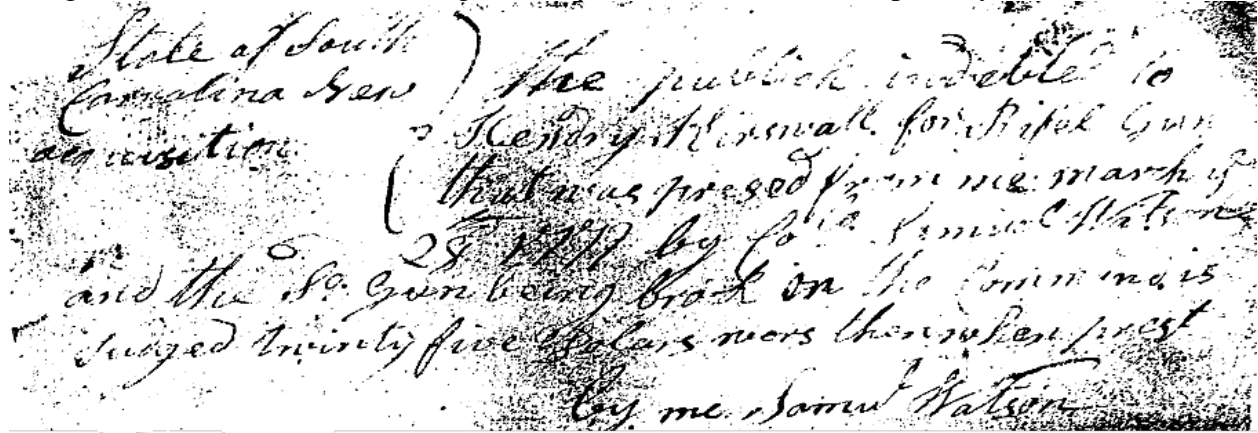 State of South
Carrolina New
acquisition
the publick indebted to
Hendry for Rifel Gun
that was presed from me march ye
28th by Colo. Samuel Watson
and the Sd. Gun being brock on the Command is
Judged twinty five Dolars wors then when prest
by me Saml Watson